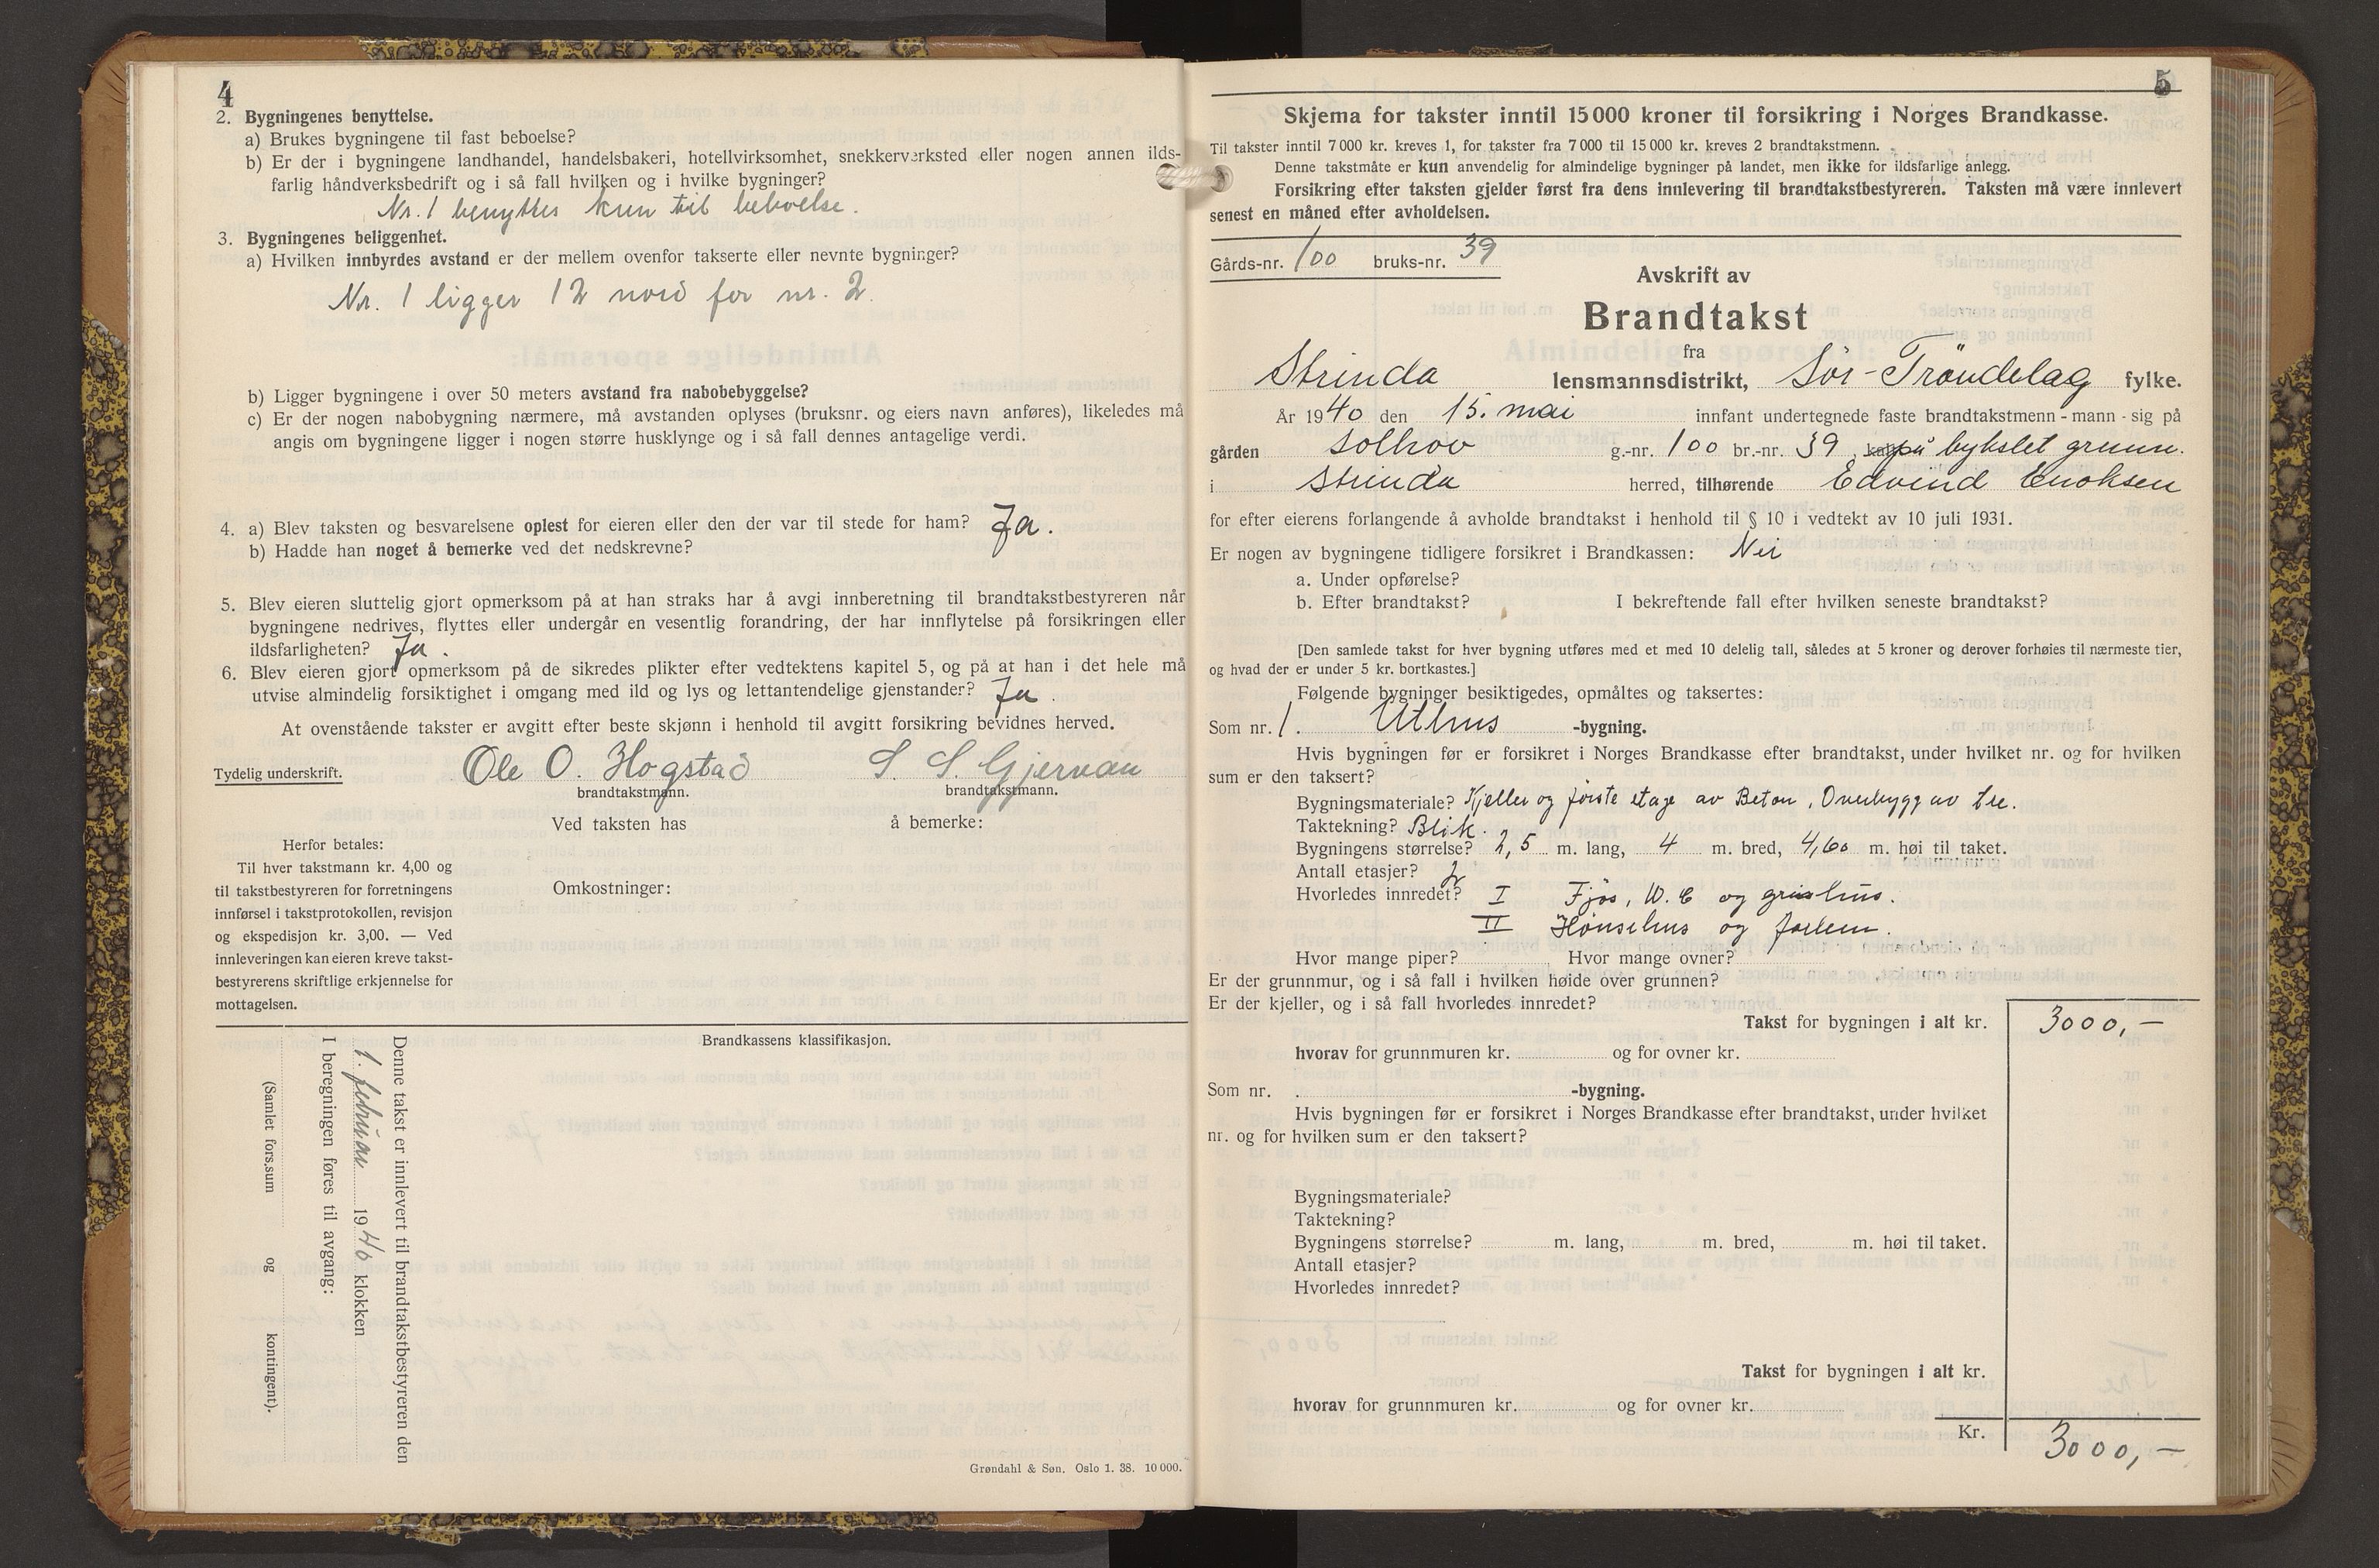 4
2. Bygningenes benyttelse.
a) Brukes bygningene til fast beboelse?
b) Er der i bygningene landhandel, handelsbakeri, hotellvirksomhet, snekkerverksted eller nogen annen ilds-
farlig håndverksbedrift og i så fall hvilken og i hvilke bygninger?
Nr. 1 benyttes kun til beboelse.
3. Bygningenes beliggenhet.
a) Hvilken innbyrdes avstand er der mellem ovenfor takserte eller nevnte bygninger?
Nr. 1 ligger 12 nord for nr. 2.
b) Ligger bygningene i over 50 meters avstand fra nabobebyggelse?
c) Er der nogen nabobygning nærmere, må avstanden oplyses (bruksnr. og eiers navn anføres), likeledes må
angis om bygningene ligger i nogen større husklynge og i så fall dennes antagelige verdi.
4. a) Blev taksten og besvarelsene oplest for eieren eller den der var til stede for ham? Ja.
b) Hadde han noget å bemerke ved det nedskrevne?
5. Blev eieren sluttelig gjort opmerksom på at han straks har å avgi innberetning til brandtakstbestyreren når
bygningene nedrives, flyttes eller undergår en vesentlig forandring, der har innflytelse på forsikringen eller
ildsfarligheten? Ja.
6. Blev eieren gjort opmerksom på de sikredes plikter efter vedtektens kapitel 5, og på at han i det hele må
utvise almindelig forsiktighet i omgang med ild og lys og lettantendelige gjenstander? Ja.
At ovenstående takster er avgitt efter beste skjønn i henhold til avgitt forsikring bevidnes herved.
Tydelig underskrift. Ole O. Hogstad S. S. Gjervan
brandtakstmann. brandtakstmann.
Ved taksten has å bemerke:
Herfor betales:
Til hver takstmann kr. 4,00 og
til takstbestyreren for forretningens
innførsel i takstprotokollen, revisjon
og ekspedisjon kr. 3,00. — Ved
innleveringen kan eieren kreve takst-
bestyrerens skriftlige erkjennelse for
mottagelsen.
Omkostninger:
Brandkassens klassifikasjon.
Denne takst er innlevert til brandtakstbestyreren den
1. februar 1940 klokken
I beregningen føres til avgang:
(Samlet fors.sum og kontingent).
Grøndahl & Søn. Oslo 1. 38. 10 000.
5
Skjema for takster inntil 15 000 kroner til forsikring i Norges Brandkasse.
Til takster inntil 7 000 kr. kreves 1, for takster fra 7 000 til 15 000 kr. kreves 2 brandtakstmenn.
Denne takstmåte er kun anvendelig for almindelige bygninger på landet, men ikke for ildsfarlige anlegg.
Forsikring efter taksten gjelder først fra dens innlevering til brandtakstbestyreren. Taksten må være innlevert
senest en måned efter avholdelsen.
Gårds-nr. 100 bruks-nr. 39
Avskrift av
Brandtakst
fra
Strinda lensmannsdistrikt, Sör-Tröndelag fylke.
År 1940 den 15. mai innfant undertegnede faste brandtakstmenn - mann - sig på
gården Solhov g.-nr. 100 br.-nr. 39, på bykslet grunn.
i Strinda herred, tilhørende Edvind Enoksen
for efter eierens forlangende å avholde brandtakst i henhold til § 10 i vedtekt av 10 juli 1931.
Er nogen av bygningene tidligere forsikret i Brandkassen: Nei
a. Under opførelse?
b. Efter brandtakst? I bekreftende fall efter hvilken seneste brandtakst?
[Den samlede takst for hver bygning utføres med et med 10 delelig tall, således at 5 kroner og derover forhøies til nærmeste tier,
og hvad der er under 5 kr. bortkastes.]
Følgende bygninger besiktigedes, opmåltes og taksertes:
Som nr. 1. Uthus -bygning.
Hvis bygningen før er forsikret i Norges Brandkasse efter brandtakst, under hvilket nr. og for hvilken
sum er den taksert?
Bygningsmateriale? Kjeller og første etage av Beton, Overbygg av tre.
Taktekning? Blik.
Bygningens størrelse? 2,5 m. lang, 4 m. bred, 4,60 m. høi til taket.
Antall etasjer? 2
Hvorledes innredet? I Fjös, W.C og grishus.
II Hönsehus og forlem.
Hvor mange piper? Hvor mange ovner?
Er der grunnmur, og i så fall i hvilken høide over grunnen?
Er der kjeller, og i så fall hvorledes innredet?
Takst for bygningen i alt kr. 3000,-
hvorav for grunnmuren kr. og for ovner kr.
Som nr. . -bygning.
Hvis bygningen før er forsikret i Norges Brandkasse efter brandtakst, under hvilket
nr. og for hvilken sum er den taksert?
Bygningsmateriale?
Taktekning?
Bygningens størrelse? m. lang, m. bred, m. høi til taket.
Antall etasjer?
Hvorledes innredet?
Takst for bygningen i alt kr.
hvorav for grunnmuren kr. og for ovner kr.
Kr. 3000,-